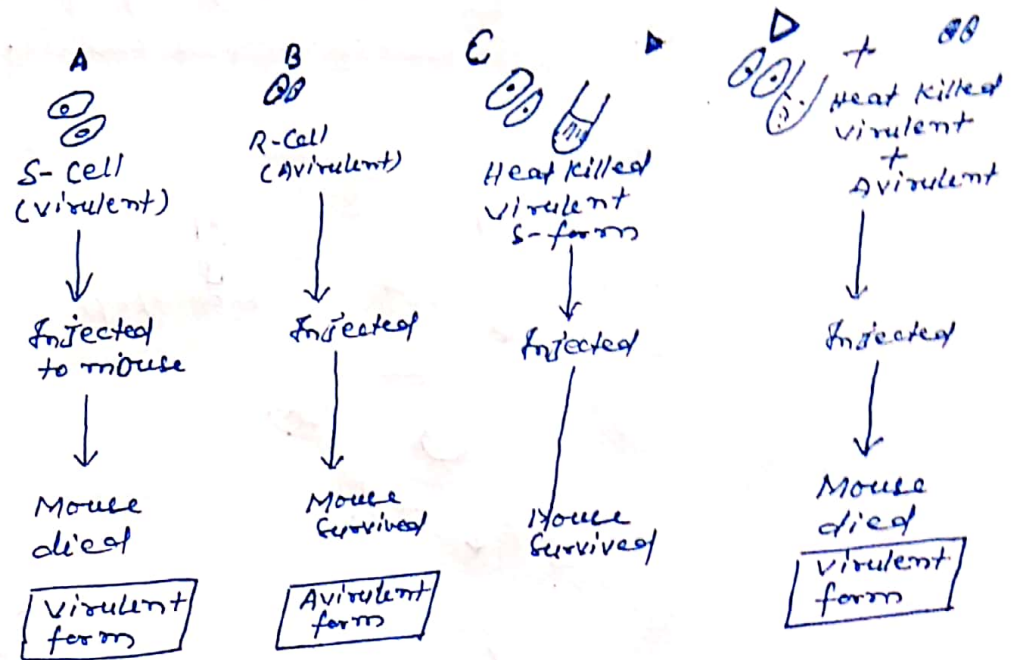 A
S-Cell
(Virulent)
Injected
to mouse
Mouse
died
Virulent
form
B
R-Cell
(Avirulent)
Injected
Mouse
Survived
Avirulent
form
C
Heat Killed
Virulent
S-form
Injected
Mouse
Survived
D
+
Heat Killed
Virulent
+
Avirulent
Injected
Mouse
died
Virulent
form